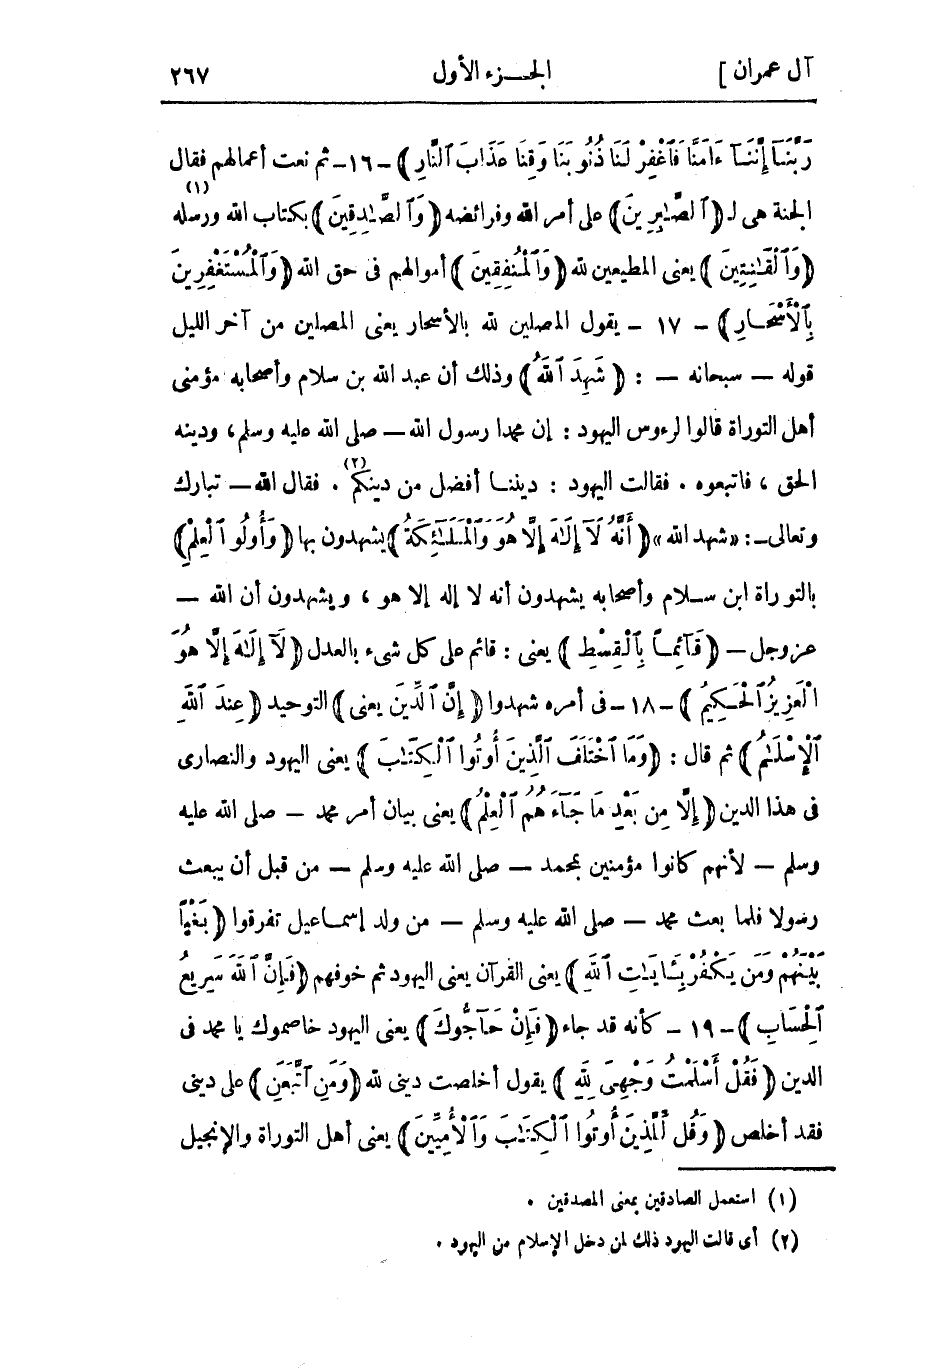 آل عمران ] الجـــزء الأول ٢٦٧
رَبَّنَآ إِنَّنَآ ءَامَنَّا فَٱغْفِرْ لَنَا ذُنُوبَنَا وَقِنَا عَذَابَ ٱلنَّارِ ﴾ -١٦- ثم نعت أعمالهم فقال
الجنة هى لـ ﴿ ٱلصَّٰبِرِينَ ﴾ على أمر الله وفرائضه ﴿ وَٱلصَّٰدِقِينَ ﴾ (١) بكتاب الله ورسله
﴿ وَٱلْقَٰنِتِينَ ﴾ يعنى المطيعين لله ﴿ وَٱلْمُنفِقِينَ ﴾ أموالهم فى حق الله ﴿ وَٱلْمُسْتَغْفِرِينَ
بِٱلْأَسْحَارِ ﴾ - ١٧ - يقول المصلين لله بالأسحار يعنى المصلين من آخر الليل
قوله — سبحانه — : ﴿ شَهِدَ ٱللَّهُ ﴾ وذلك أن عبد الله بن سلام وأصحابه مؤمنى
أهل التوراة قالوا لرءوس اليهود : إن محمدا رسول الله — صلى الله عليه وسلم، ودينه
الحق ، فاتبعوه . فقالت اليهود : ديننا أفضل من دينكم (٢) . فقال الله — تبارك
وتعالى —: «شهد الله» ﴿ أَنَّهُ لَآ إِلَٰهَ إِلَّا هُوَ وَٱلْمَلَٰٓئِكَةُ ﴾ يشهدون بها ﴿ وَأُولُو ٱلْعِلْمِ ﴾
بالتوراة ابن سلام وأصحابه يشهدون أنه لا إله إلا هو ، ويشهدون أن الله —
عز وجل — ﴿ قَآئِمًا بِٱلْقِسْطِ ﴾ يعنى : قائم على كل شىء بالعدل ﴿ لَآ إِلَٰهَ إِلَّا هُوَ
ٱلْعَزِيزُ ٱلْحَكِيمُ ﴾ - ١٨ - فى أمره شهدوا ﴿ إِنَّ ٱلدِّينَ يعنى ﴾ التوحيد ﴿ عِندَ ٱللَّهِ
ٱلْإِسْلَٰمُ ﴾ ثم قال : ﴿ وَمَا ٱخْتَلَفَ ٱلَّذِينَ أُوتُوا ٱلْكِتَٰبَ ﴾ يعنى اليهود والنصارى
فى هذا الدين ﴿ إِلَّا مِن بَعْدِ مَا جَآءَهُمُ ٱلْعِلْمُ ﴾ يعنى بيان أمر محمد — صلى الله عليه
وسلم — لأنهم كانوا مؤمنين بمحمد — صلى الله عليه وسلم — من قبل أن يبعث
رسولا فلما بعث محمد — صلى الله عليه وسلم — من ولد إسماعيل تفرقوا ﴿ بَغْيًا
بَيْنَهُمْ وَمَن يَكْفُرْ بِـَٔايَٰتِ ٱللَّهِ ﴾ يعنى القرآن يعنى اليهود ثم خوفهم ﴿ فَإِنَّ ٱللَّهَ سَرِيعُ
ٱلْحِسَابِ ﴾ - ١٩ - كأنه قد جاء ﴿ فَإِنْ حَآجُّوكَ ﴾ يعنى اليهود خاصموك يا محمد فى
الدين ﴿ فَقُلْ أَسْلَمْتُ وَجْهِىَ لِلَّهِ ﴾ يقول أخلصت دينى لله ﴿ وَمَنِ ٱتَّبَعَنِ ﴾ على دينى
فقد أخلص ﴿ وَقُل لِّلَّذِينَ أُوتُوا ٱلْكِتَٰبَ وَٱلْأُمِّيِّينَ ﴾ يعنى أهل التوراة والإنجيل
(١) استعمل الصادقين بمعنى المصدقين .
(٢) أى قالت اليهود ذلك لمن دخل الإسلام من اليهود .